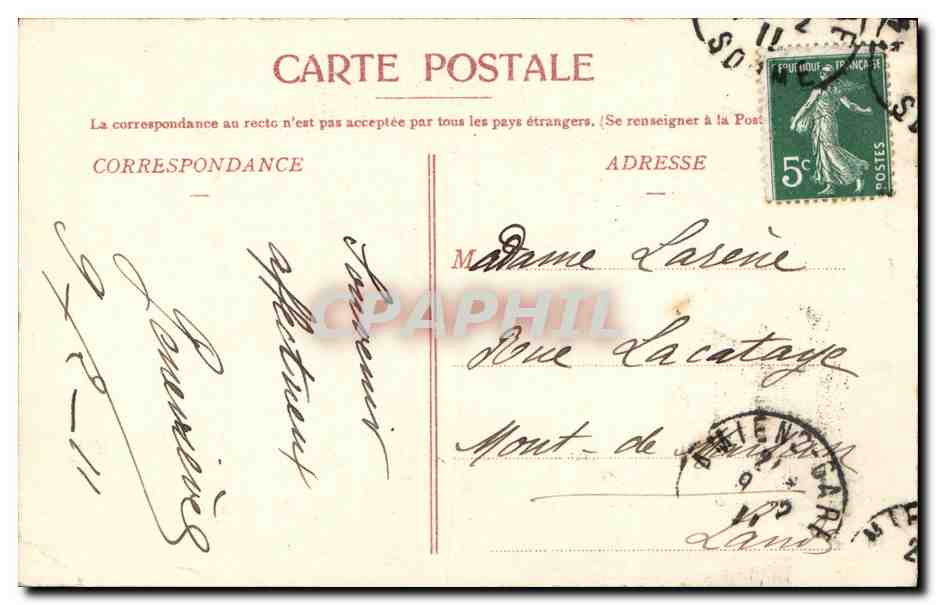 CARTE POSTALE
La correspondance au recto n'est pas acceptée par tous les pays étrangers. (Se renseigner à la Post
CORRESPONDANCE
ADRESSE
RÉPUBLIQUE FRANÇAISE
5c
POSTES
11
SOMME
Souvenir
affectueux
Geneviève
9-X-11
Madame Larène
Rue Lacataye
Mont-de-Marsan
Landes
AMIENS-GARE
CPAPHIL